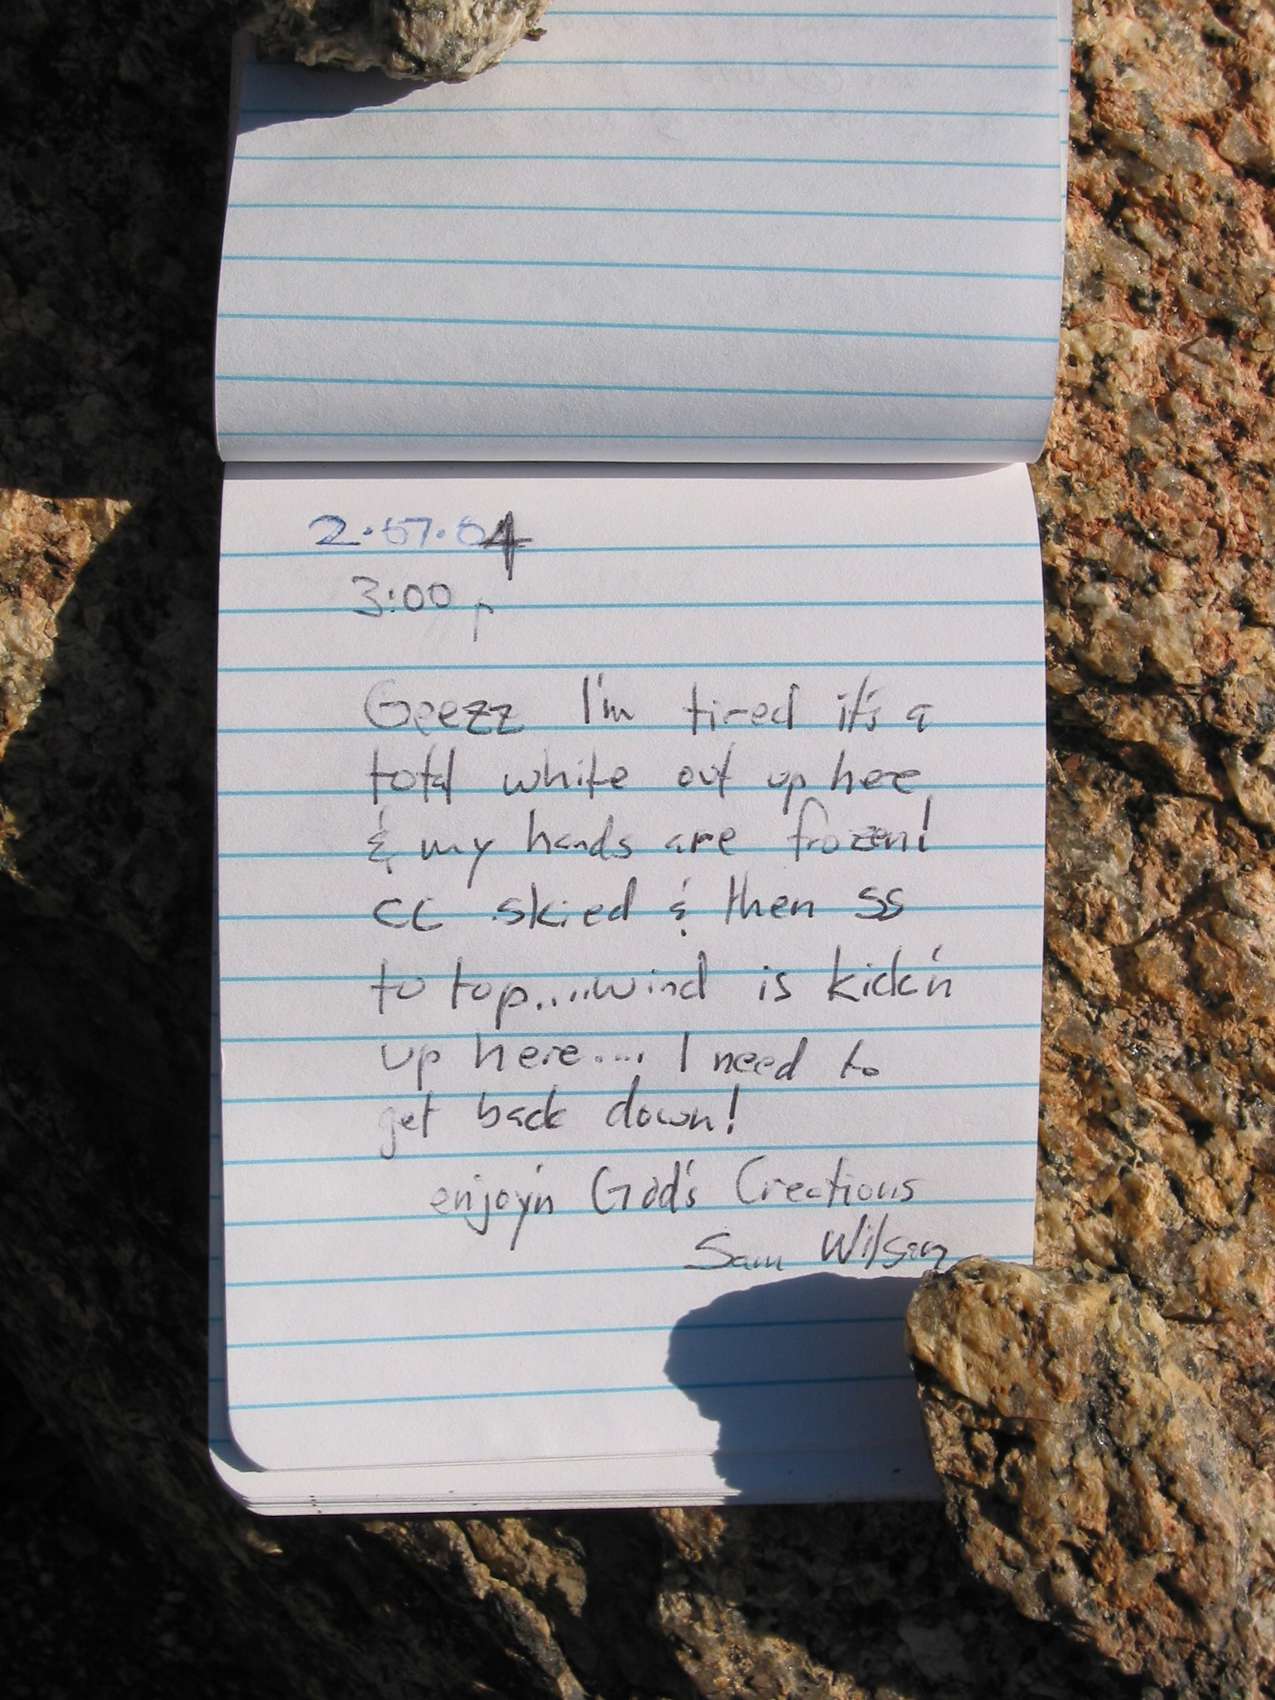 2.07.04
3:00 p
Geezz I'm tired it's a
total white out up here
& my hands are frozen!
CC skied & then SS
to top....wind is kick'n
up here.... I need to
get back down!
enjoy'n God's Creations
Sam Wilson